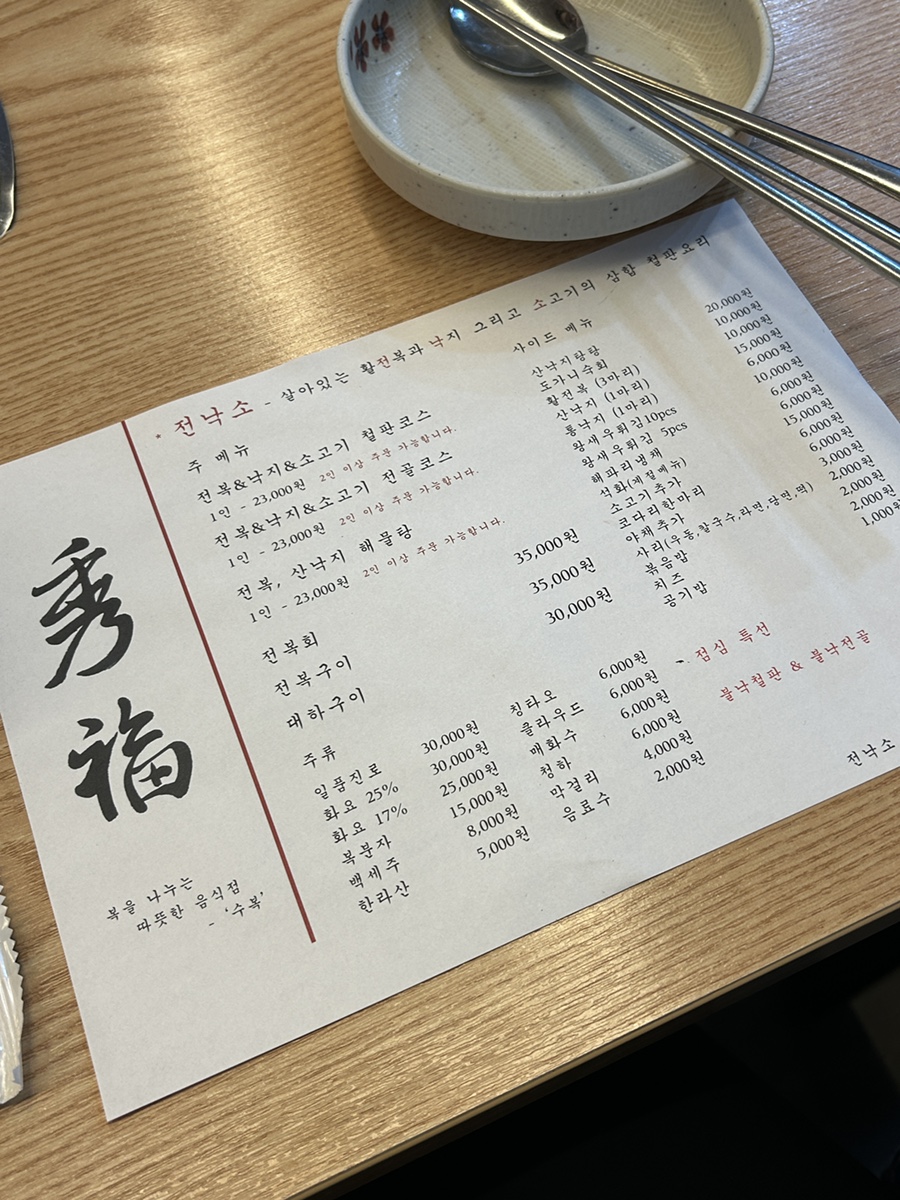 * 전낙소 - 살아있는 활전복과 낙지 그리고 소고기의 삼합 철판요리
주 메뉴
전복&낙지&소고기 철판코스
1인 - 23,000원 2인 이상 주문 가능합니다.
전복&낙지&소고기 전골코스
1인 - 23,000원 2인 이상 주문 가능합니다.
전복, 산낙지 해물탕
1인 - 23,000원 2인 이상 주문 가능합니다.
전복회 35,000원
전복구이 35,000원
대하구이 30,000원
사이드 메뉴
산낙지탕탕 20,000원
도가니수회 10,000원
활전복 (3마리) 10,000원
산낙지 (1마리) 15,000원
통낙지 (1마리) 6,000원
왕새우튀김10pcs 10,000원
왕새우튀김 5pcs 6,000원
해파리냉채 6,000원
석화(계절메뉴) 15,000원
소고기추가 6,000원
코다리한마리 6,000원
야채추가 3,000원
사리(우동,칼국수,라면,당면,떡) 2,000원
볶음밥 2,000원
치즈 2,000원
공기밥 1,000원
주류
일품진로 30,000원
화요 25% 30,000원
화요 17% 25,000원
복분자 15,000원
백세주 8,000원
한라산 5,000원
칭타오 6,000원
클라우드 6,000원
매화수 6,000원
청하 6,000원
막걸리 4,000원
음료수 2,000원
점심 특선
불낙철판 & 불낙전골
전낙소
秀福
복을 나누는
따뜻한 음식점
- '수복'